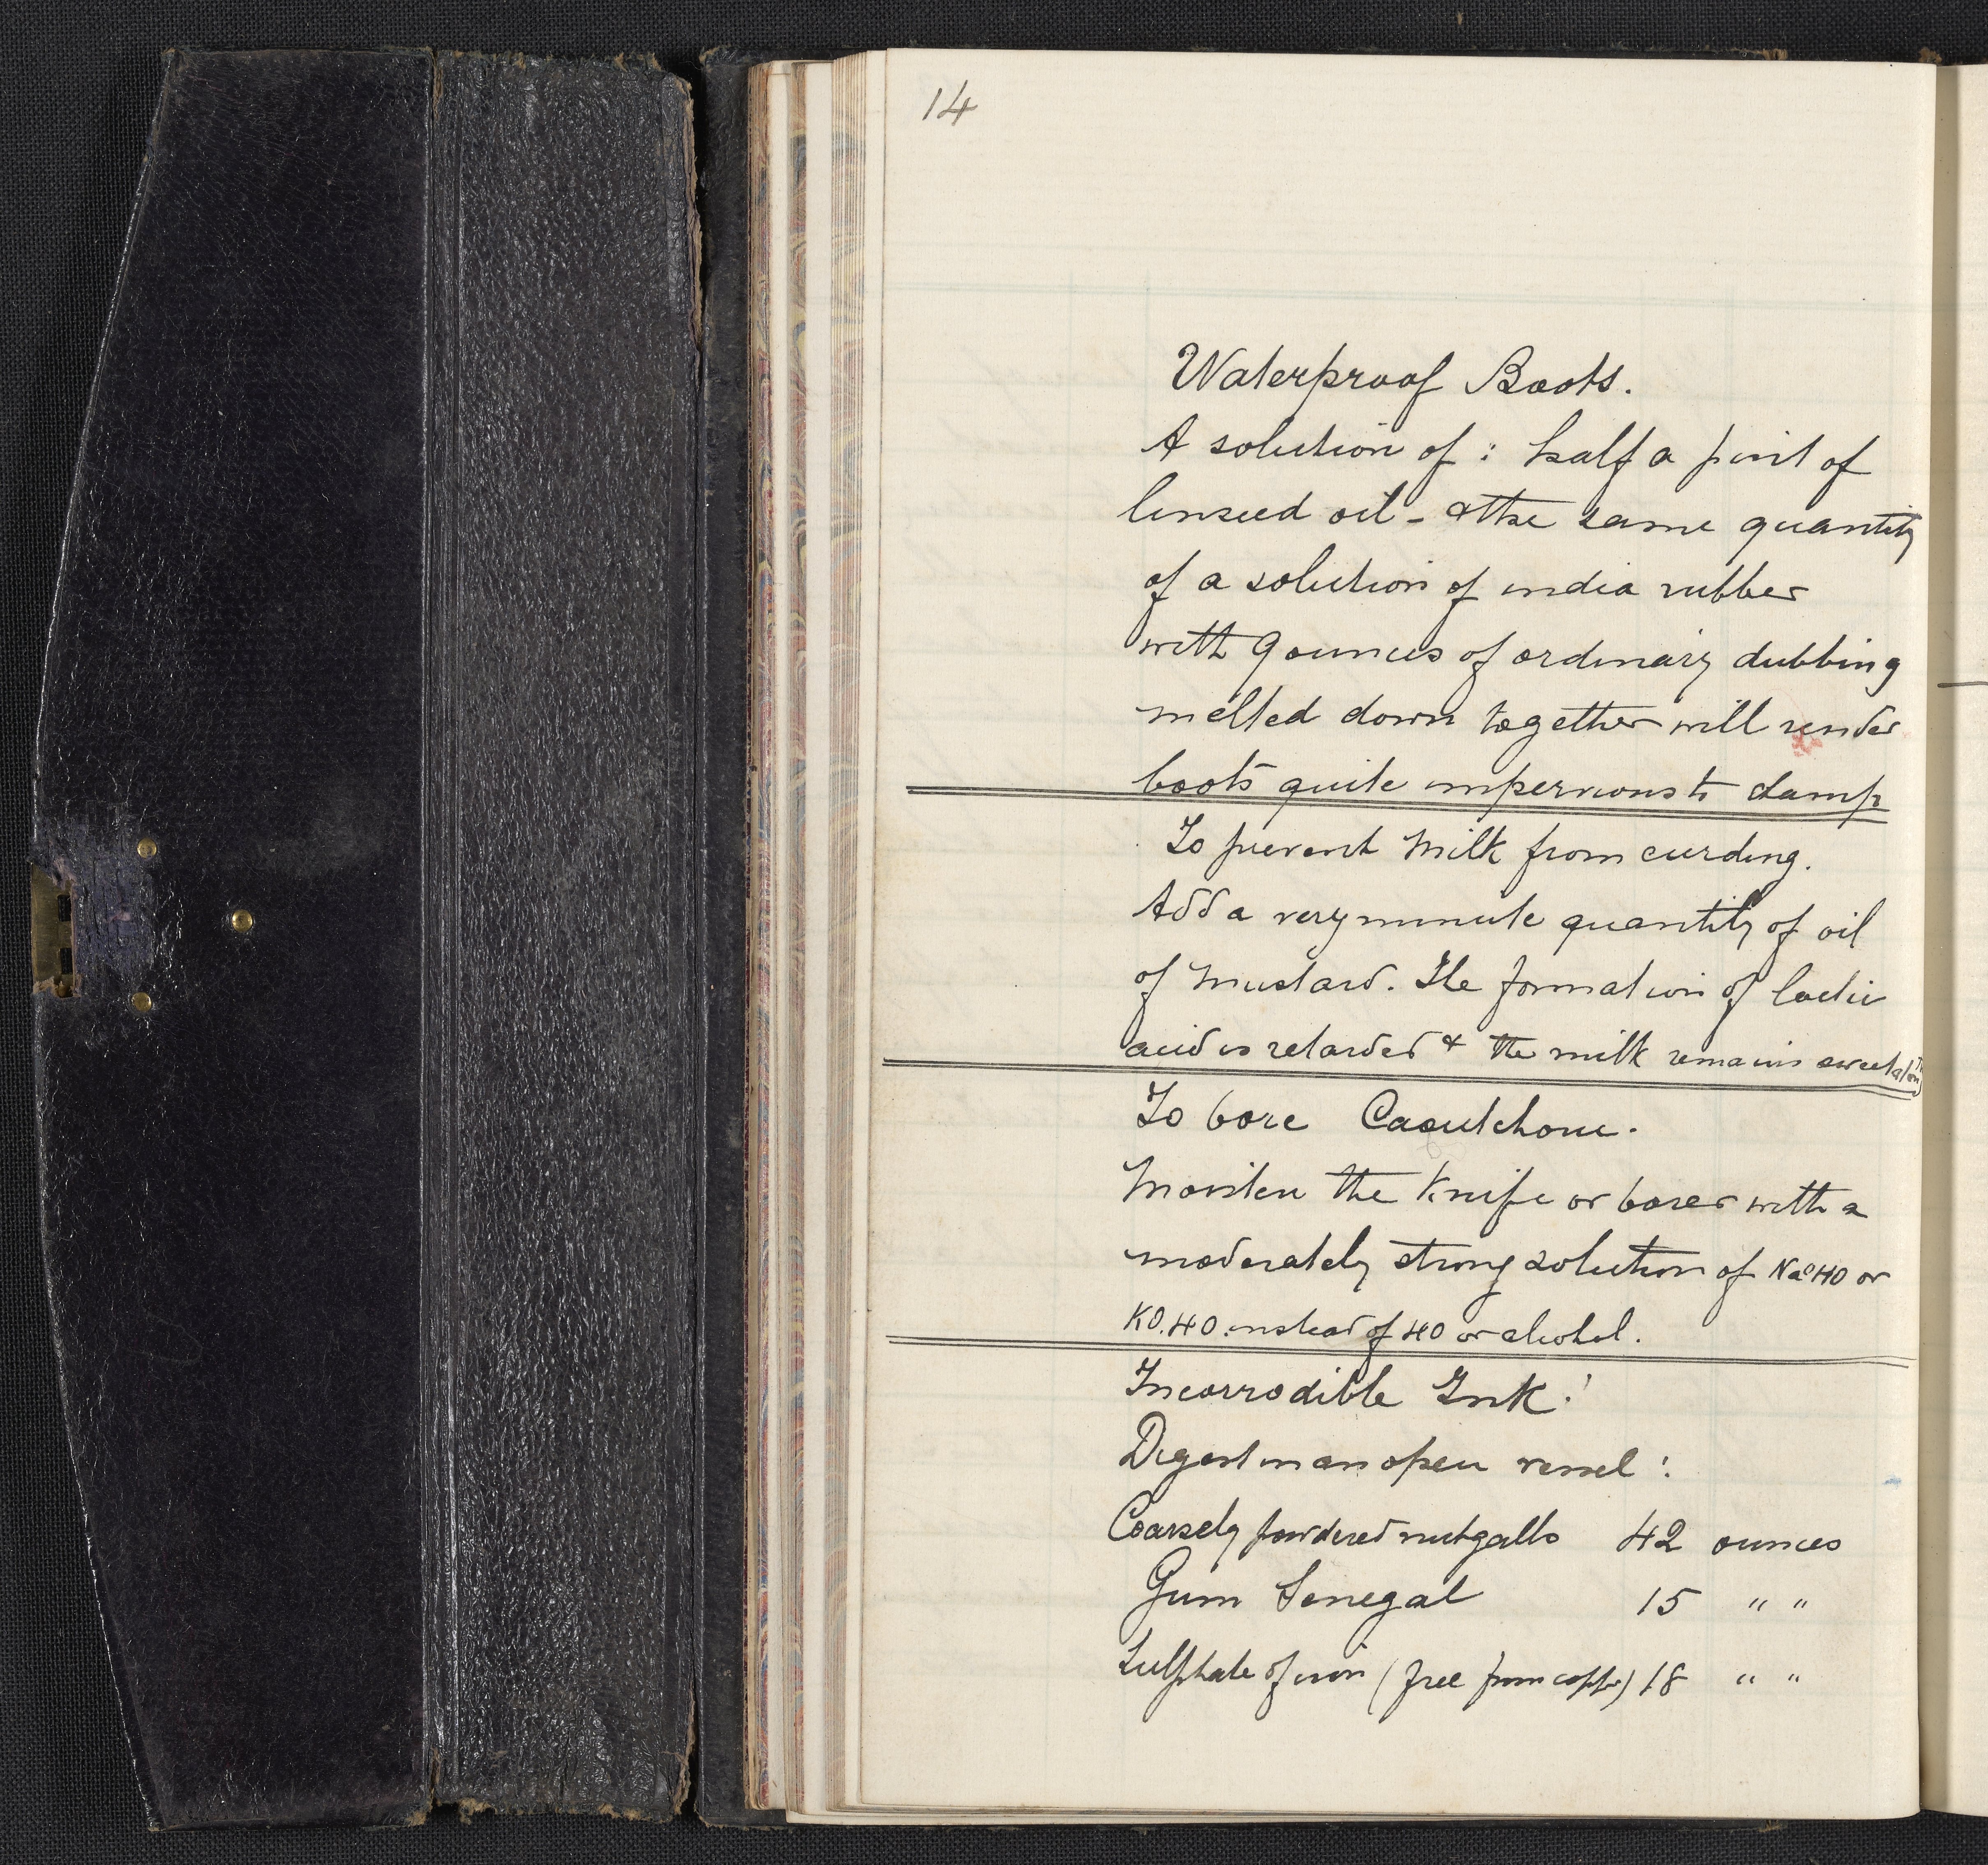 14
Waterproof Boots.
A solution of : half a pint of
linseed oil - & the same quantity
of a solution of india rubber
with 9 ounces of ordinary dubbing
melted down together will render
boots quite impervious to damp
To prevent Milk from curding.
Add a very minute quantity of oil
of Mustard. The formation of lactic
acid is retarded & the milk remains sweet
To bore Caoutchouc.
Moisten the knife or borer with a
moderately strong solution of NaOHO or
KO.HO. instead of HO or alcohol.
Incorrodible Ink :
Digest in an open vessel :
Coarsely powdered nutgalls 42 ounces
Gum Senegal 15 " "
Sulphate of iron (free from copper) 18 " "